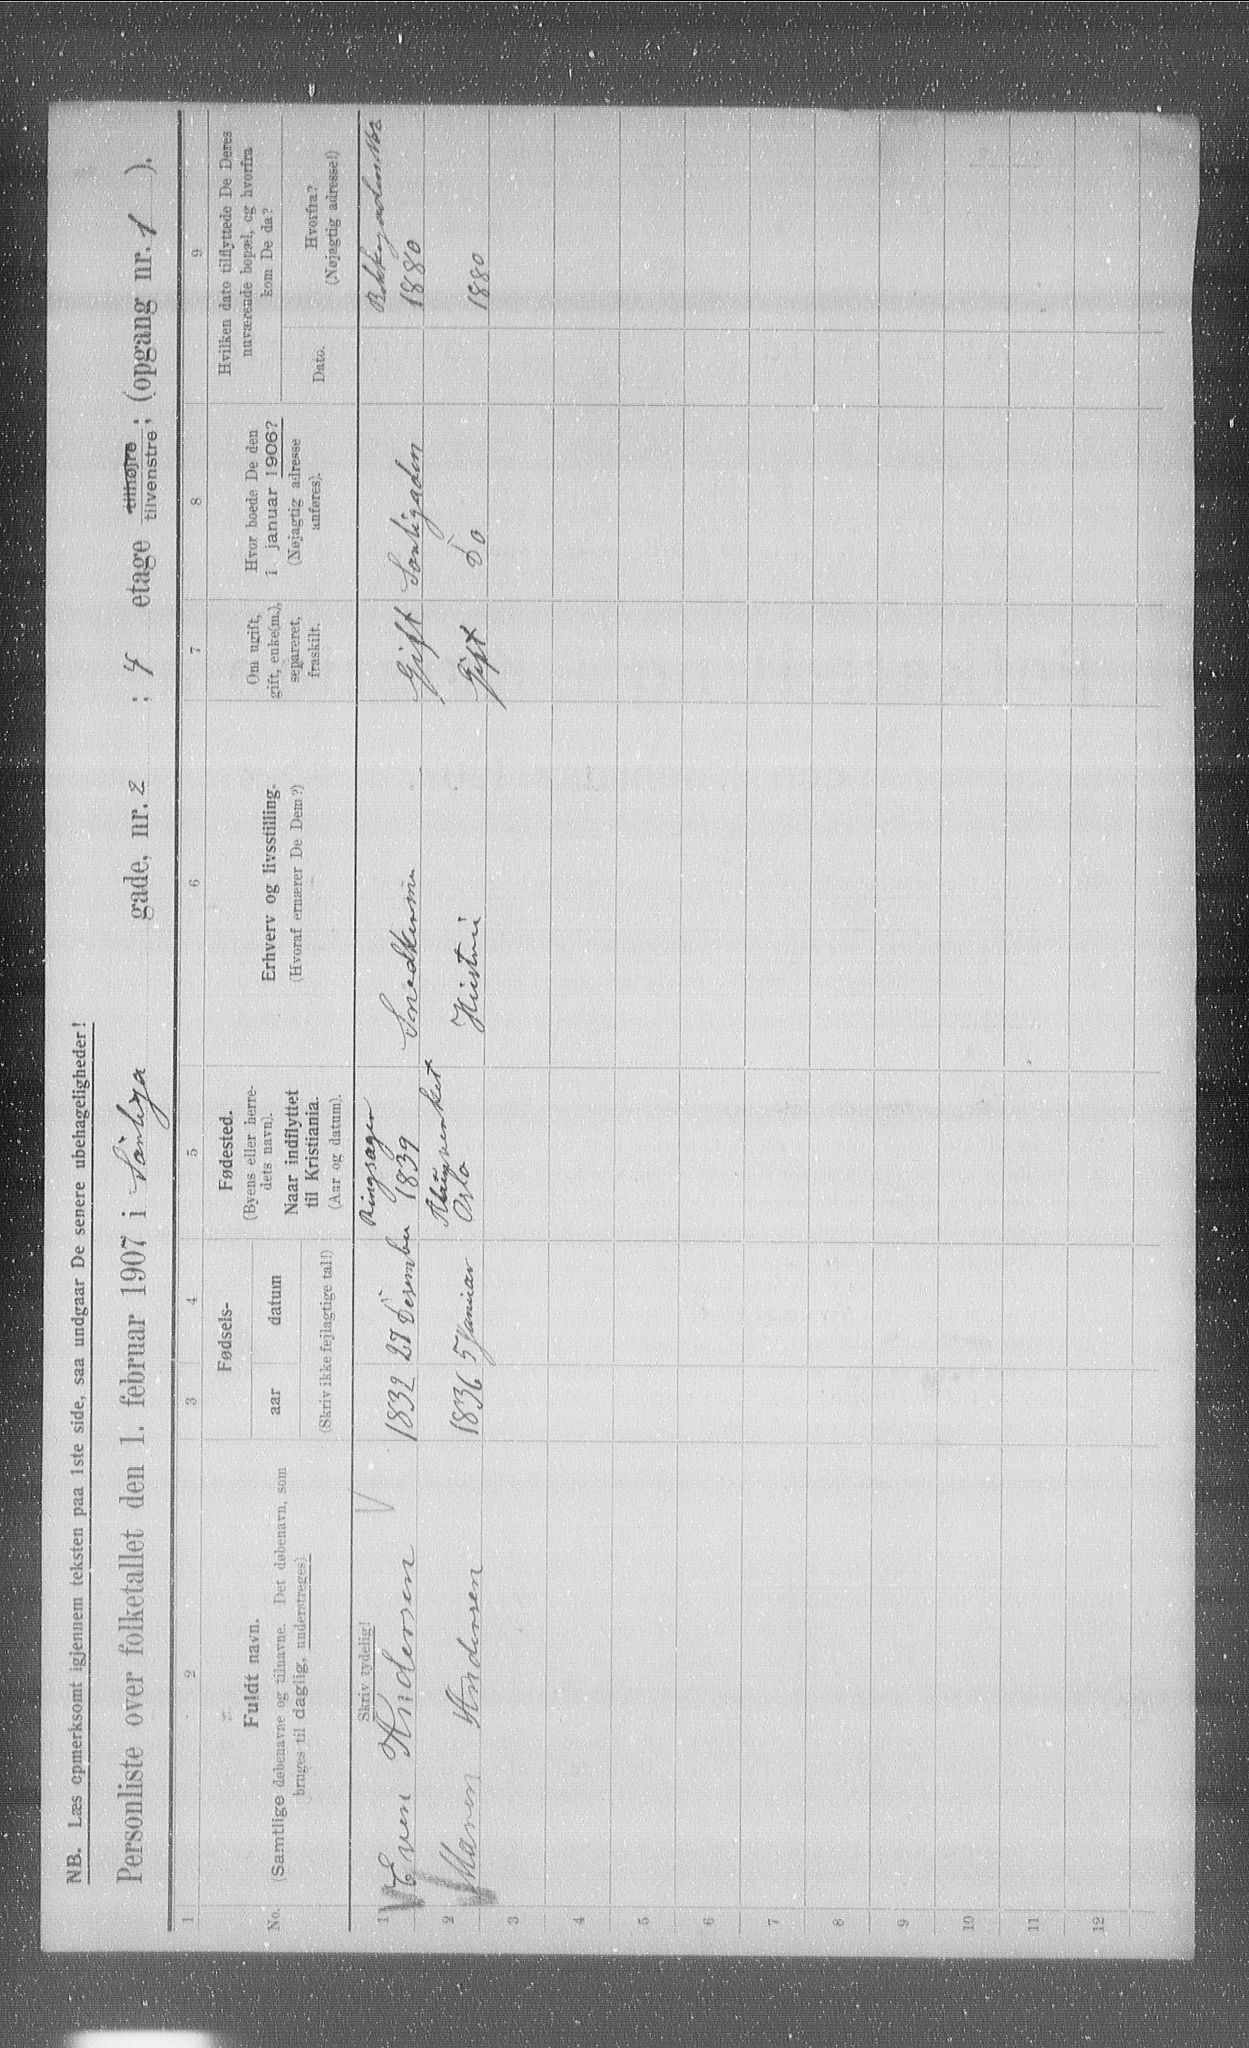 NB. Læs opmerksomt igjennem teksten paa 1ste side, saa undgaar De senere ubehageligheder!
Personliste over folketallet den 1. februar 1907 i Sørliga gade, nr. 2 ; 4 etage tilhøjre tilvenstre; (opgang nr. 1 ).
1 2 3 4 5 6 7 8 9
No.
Fuldt navn.
(Samtlige døbenavne og tilnavne. Det døbenavn, som
bruges til daglig, understreges)
Fødsels-
aar datum
(Skriv ikke fejlagtige tal!)
Fødested.
(Byens eller herre-
dets navn).
Naar indflyttet
til Kristiania.
(Aar og datum).
Erhverv og livsstilling.
(Hvoraf ernærer De Dem?)
Om ugift,
gift, enke(m.),
separeret,
fraskilt.
Hvor boede De den
1. januar 1906?
(Nøjagtig adresse
anføres).
Hvilken dato tilflyttede De Deres
nuværende bopæl, og hvorfra
kom De da?
Dato.
Hvorfra?
(Nøjagtig adresse!)
Skriv tydelig!
Ringsager
1 Even Andersen 1832 27 Desember 1839 Snedker Gift Sørligaden 1880
2 Maren Andersen 1836 5 Januar Oslo Hustru Gift Do 1880
3
4
5
6
7
8
9
10
11
12